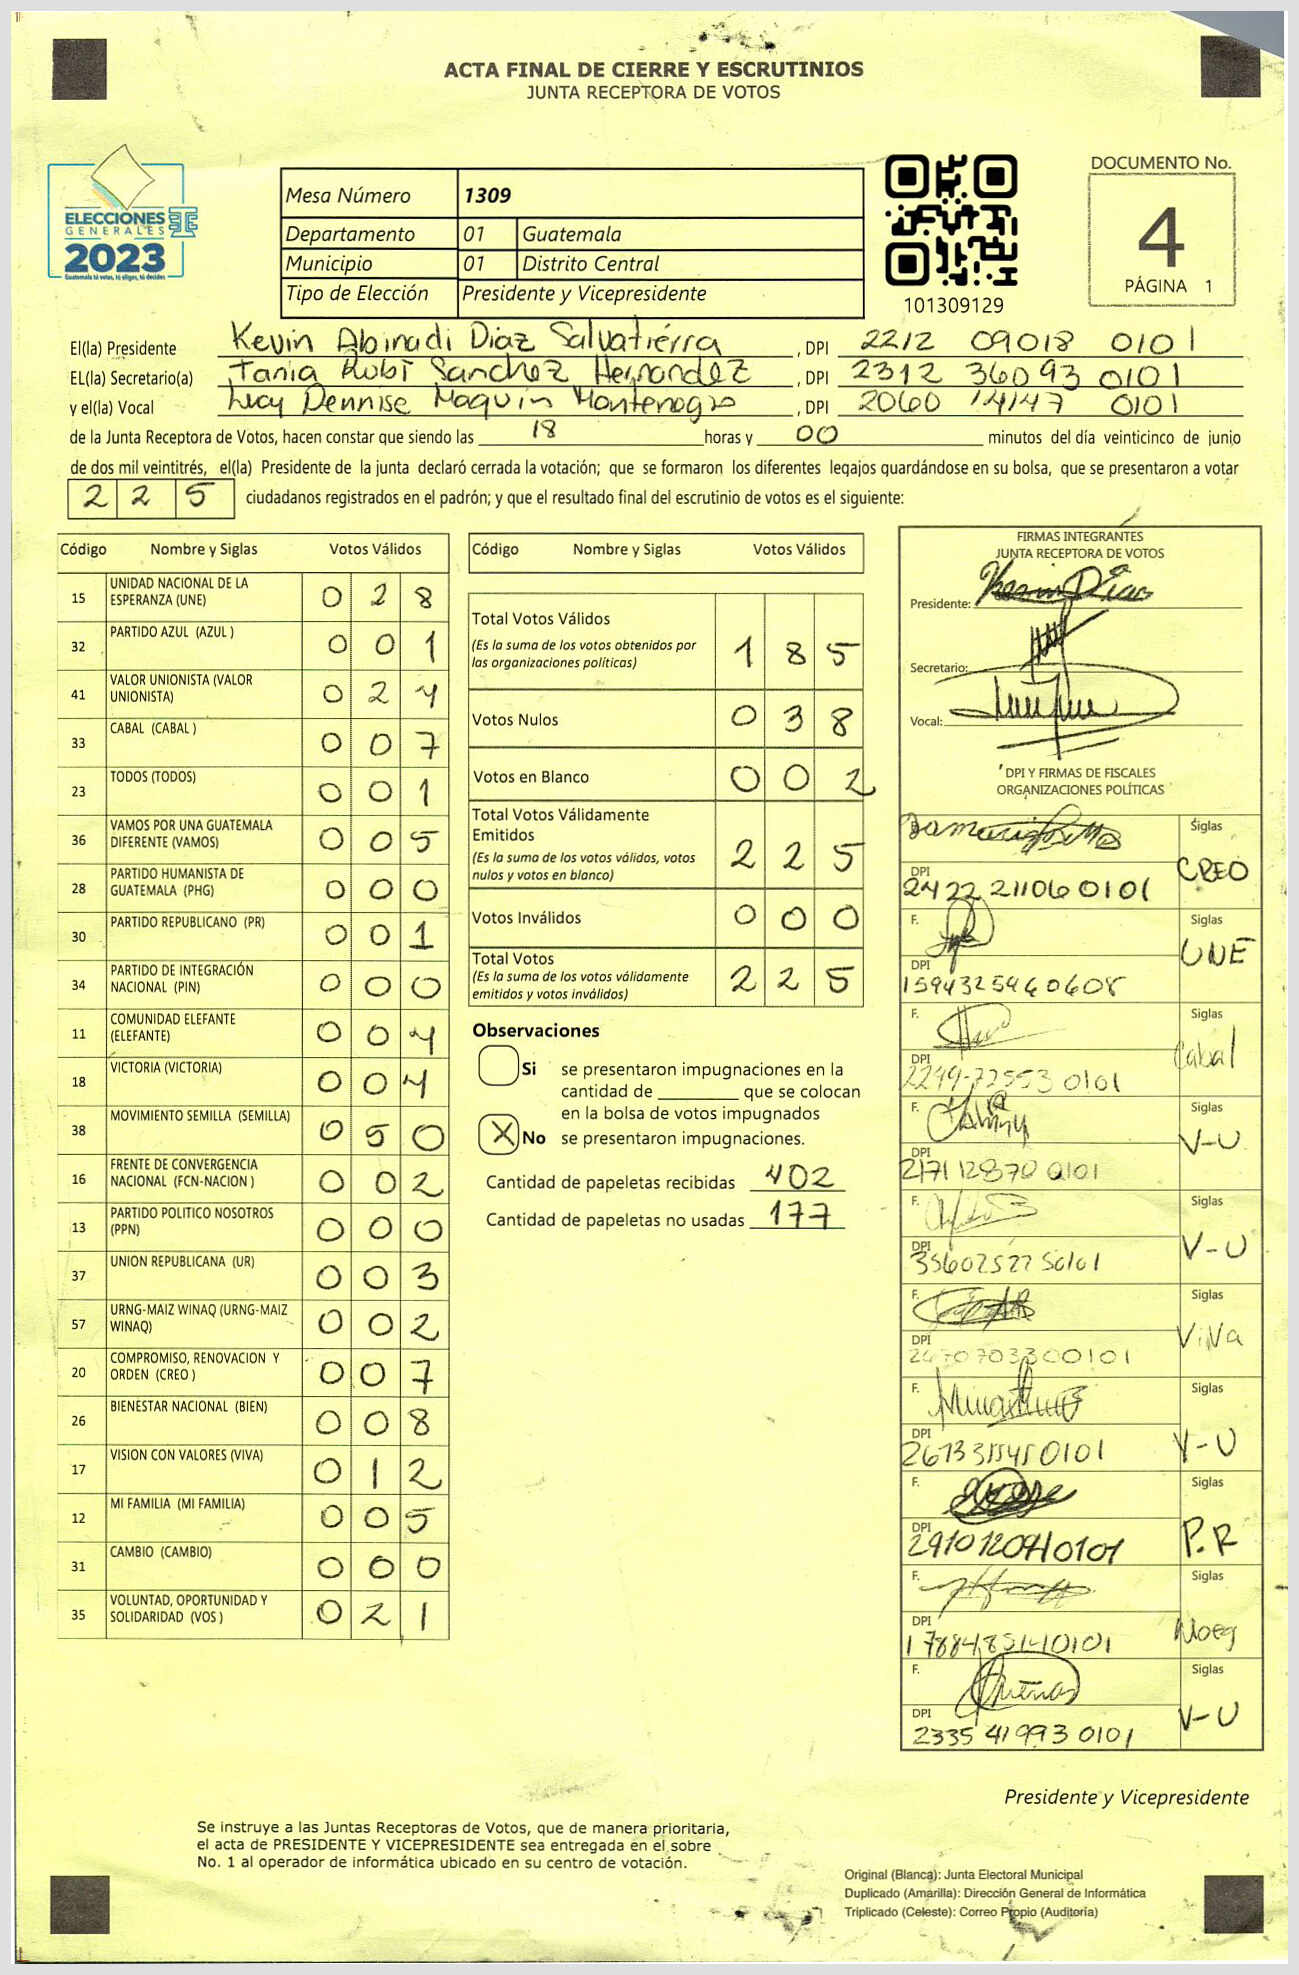 ACTA FINAL DE CIERRE Y ESCRUTINIOS
JUNTA RECEPTORA DE VOTOS
ELECCIONES
GENERALES
2023
Guatemala tú votas, tú eliges, tú decides
Mesa Número 1309
Departamento 01 Guatemala
Municipio 01 Distrito Central
Tipo de Elección Presidente y Vicepresidente
101309129
DOCUMENTO No.
4
PÁGINA 1
El(la) Presidente Kevin Abinadi Diaz Salvatiérra , DPI 2212 09018 0101
EL(la) Secretario(a) Tania Rubi Sanchez Hernandez , DPI 2312 36093 0101
y el(la) Vocal Lucy Dennise Maquin Montenegro , DPI 2060 14147 0101
de la Junta Receptora de Votos, hacen constar que siendo las 18 horas y 00 minutos del día veinticinco de junio
de dos mil veintitrés, el(la) Presidente de la junta declaró cerrada la votación; que se formaron los diferentes legajos guardándose en su bolsa, que se presentaron a votar
2 2 5 ciudadanos registrados en el padrón; y que el resultado final del escrutinio de votos es el siguiente:
Código Nombre y Siglas Votos Válidos
15 UNIDAD NACIONAL DE LA ESPERANZA (UNE) 0 2 8
32 PARTIDO AZUL (AZUL ) 0 0 1
41 VALOR UNIONISTA (VALOR UNIONISTA) 0 2 4
33 CABAL (CABAL ) 0 0 7
23 TODOS (TODOS) 0 0 1
36 VAMOS POR UNA GUATEMALA DIFERENTE (VAMOS) 0 0 5
28 PARTIDO HUMANISTA DE GUATEMALA (PHG) 0 0 0
30 PARTIDO REPUBLICANO (PR) 0 0 1
34 PARTIDO DE INTEGRACIÓN NACIONAL (PIN) 0 0 0
11 COMUNIDAD ELEFANTE (ELEFANTE) 0 0 4
18 VICTORIA (VICTORIA) 0 0 4
38 MOVIMIENTO SEMILLA (SEMILLA) 0 5 0
16 FRENTE DE CONVERGENCIA NACIONAL (FCN-NACION ) 0 0 2
13 PARTIDO POLITICO NOSOTROS (PPN) 0 0 0
37 UNION REPUBLICANA (UR) 0 0 3
57 URNG-MAIZ WINAQ (URNG-MAIZ WINAQ) 0 0 2
20 COMPROMISO, RENOVACION Y ORDEN (CREO ) 0 0 7
26 BIENESTAR NACIONAL (BIEN) 0 0 8
17 VISION CON VALORES (VIVA) 0 1 2
12 MI FAMILIA (MI FAMILIA) 0 0 5
31 CAMBIO (CAMBIO) 0 0 0
35 VOLUNTAD, OPORTUNIDAD Y SOLIDARIDAD (VOS ) 0 2 1
Código Nombre y Siglas Votos Válidos
Total Votos Válidos
(Es la suma de los votos obtenidos por
las organizaciones políticas) 1 8 5
Votos Nulos 0 3 8
Votos en Blanco 0 0 2
Total Votos Válidamente
Emitidos
(Es la suma de los votos válidos, votos
nulos y votos en blanco) 2 2 5
Votos Inválidos 0 0 0
Total Votos
(Es la suma de los votos válidamente
emitidos y votos inválidos) 2 2 5
Observaciones
Si se presentaron impugnaciones en la
cantidad de ________ que se colocan
en la bolsa de votos impugnados
X No se presentaron impugnaciones.
Cantidad de papeletas recibidas 402
Cantidad de papeletas no usadas 177
FIRMAS INTEGRANTES
JUNTA RECEPTORA DE VOTOS
Presidente: Kevin Diaz
Secretario:
Vocal:
DPI Y FIRMAS DE FISCALES
ORGANIZACIONES POLÍTICAS
Siglas CREO
DPI 2422 21106 0101
F. Siglas UNE
DPI 1594325960608
F. Siglas Cabal
DPI 2249-72553 0101
F. Siglas V-U
DPI 2171 12870 0101
F. Siglas V-U
DPI
F. Siglas ViVa
DPI
F. Siglas V-U
DPI
F. Siglas P.R
DPI
F. Siglas
DPI
F. Siglas V-U
DPI 2335 41993 0101
Presidente y Vicepresidente
Se instruye a las Juntas Receptoras de Votos, que de manera prioritaria,
el acta de PRESIDENTE Y VICEPRESIDENTE sea entregada en el sobre
No. 1 al operador de informática ubicado en su centro de votación.
Original (Blanca): Junta Electoral Municipal
Duplicado (Amarilla): Dirección General de Informática
Triplicado (Celeste): Correo Propio (Auditoría)